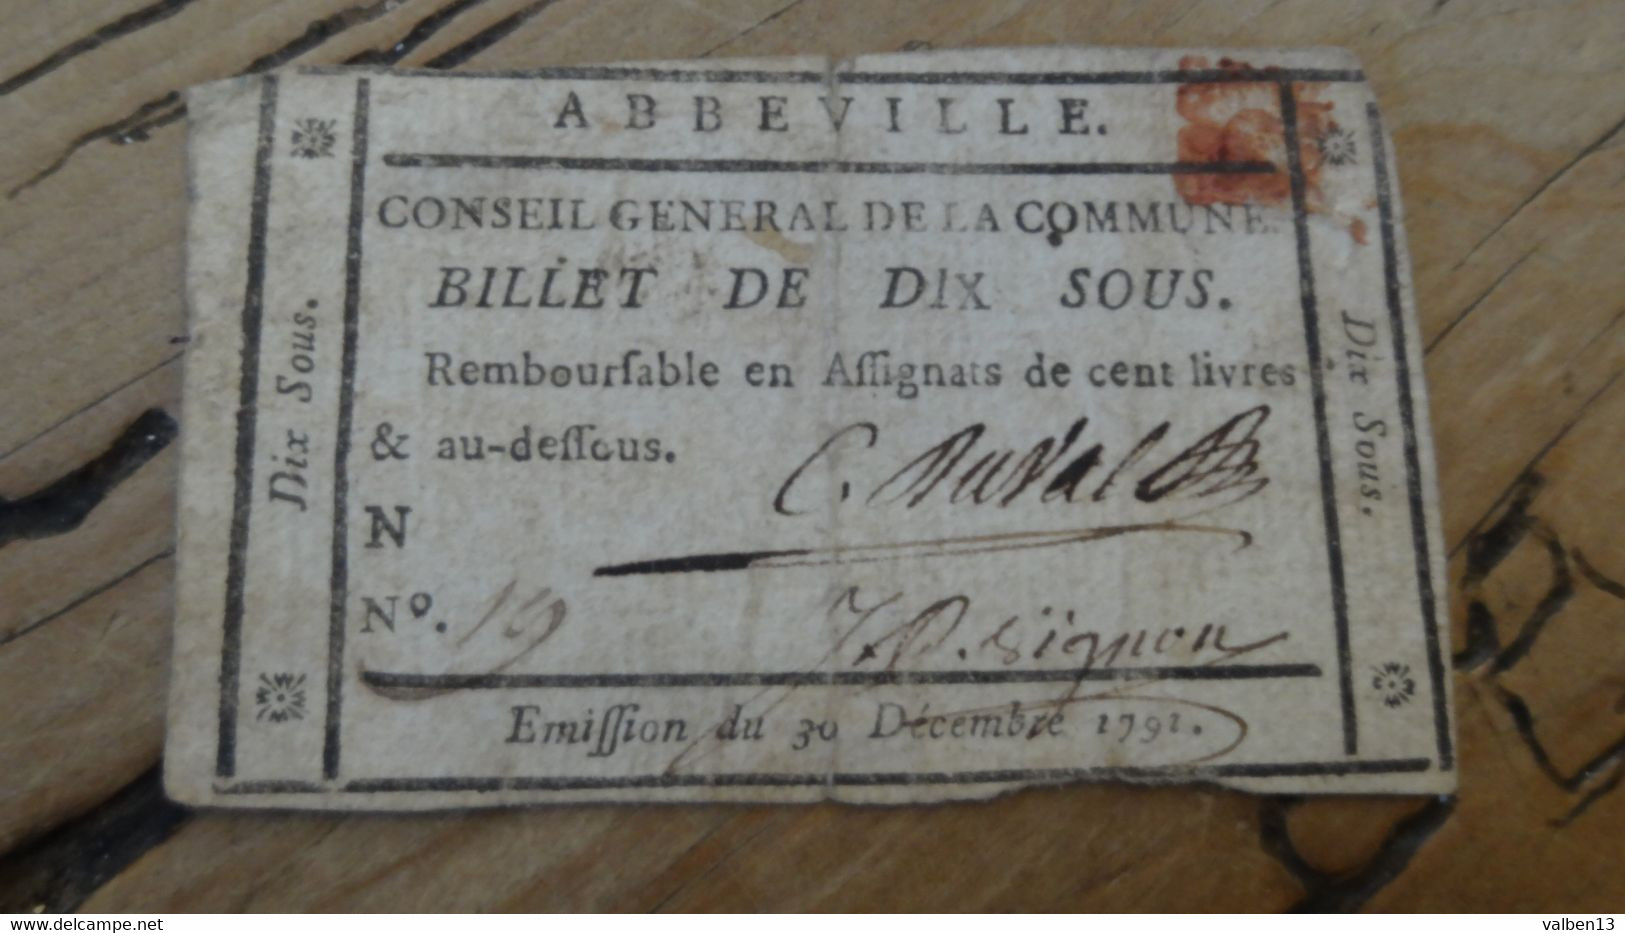 ABBEVILLE.
CONSEIL GENERAL DE LA COMMUNE.
BILLET DE DIX SOUS.
Rembourſable en Aſſignats de cent livres
& au-deſſous.
C. Duval
N
Nº. 19
J. P. Signon
Emiſſion du 30 Décembre 1791.
Dix Sous.
Dix Sous.
delcampe.net
valben13